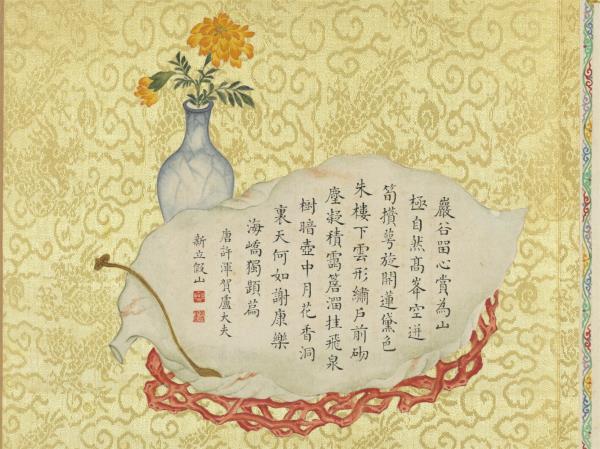 巖谷留心賞為山
極自然高峯空迸
筍攢萼旋開蓮黛色
朱樓下雲形繡戶前砌
塵凝積靄簷溜挂飛泉
樹暗壺中月花香洞
裏天何如謝康樂
海嶠獨題篇
唐許渾賀盧大夫
新立假山